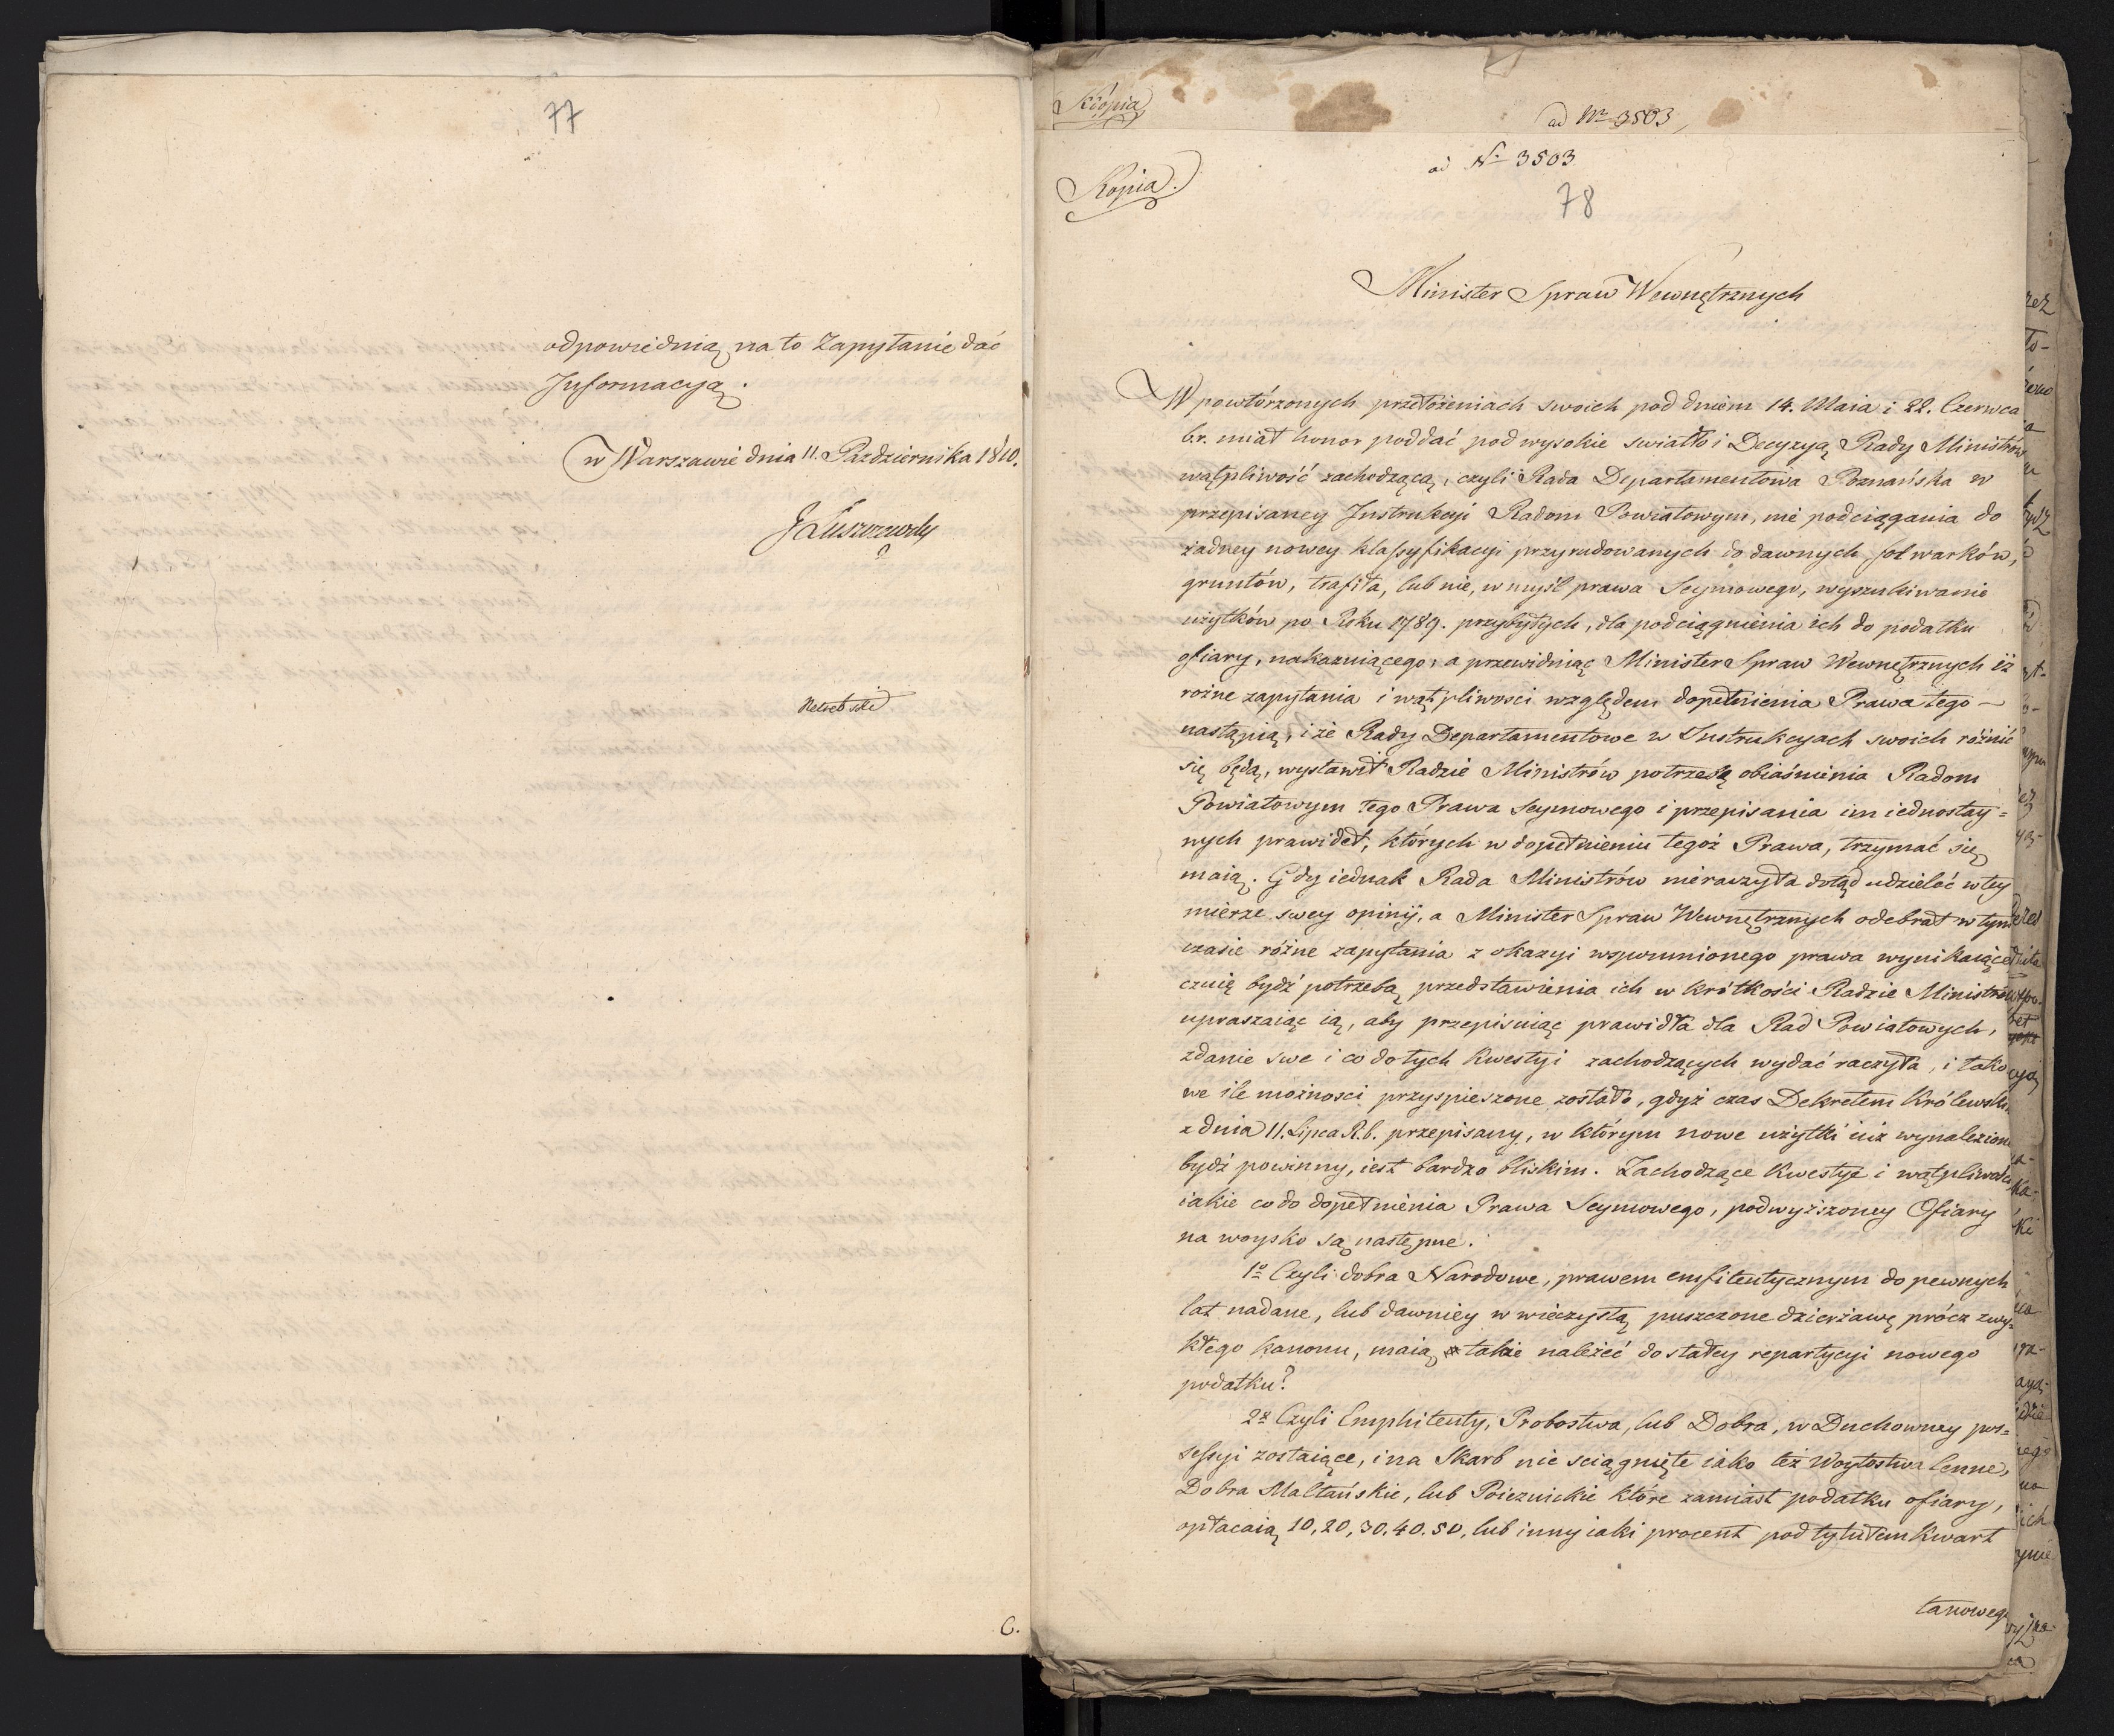 77
odpowiednią na to Zapytanie dać
Informacyą.
w Warszawie dnia 11. Pazdziernika 1810.
JŁuszczewsky
C.
Kiópia
ad Nr 3503
ad N. 3503
Kopia.
78
Minister Spraw Wewnętrznych
W powtórzonych przełożeniach swoich pod dniem 14. Maia i 22. Czerwca
b.r. miał honor poddać pod wysokie swiatło i Decyzyą Rady Ministrów
wątpliwość zachodzącą, czyli Rada Departamentowa Poznańska w
przepisaney Instrukcyi Radom Powiatowym, nie podciągania do
żadney nowey klassyfikacyi przyrudowanych do dawnych folwarków,
gruntów, trafiła, lub nie, w myśl prawa Seymowego, wyszukiwanie
użytków po Roku 1789. przybyłych, dla podciągnienia ich do podatku
ofiary, nakazuiącego, a przewiduiąc Minister Spraw Wewnętrznych iż
rożne zapytania i wątpliwosci względem dopełnienia Prawa tego —
nastąpią, i że Rady Departamentowe w Instrukcyach swoich różnić
się będą, wystawił Radzie Ministrów potrzebę obiaśnienia Radom
Powiatowym tego Prawa Seymowego i przepisania im iednostay=
nych prawideł, których w dopełnieniu tegoż Prawa, trzymać się
maią. Gdy iednak Rada Ministrów nieraczyła dotąd udzielić w tey
mierze swey opinij, a Minister Spraw Wewnętrznych odebrał w tym
czasie różne zapytania z okazyi wspomnionego prawa wynikaiące
czuię bydź potrzebą przedstawienia ich w krótkości Radzie Ministrów
upraszaiąc ią, aby przepisuiąc prawidła dla Rad Powiatowych,
zdanie swe i co do tych kwestyi zachodzących wydać raczyła, i tako
we ile możnosci przyspieszone zostało, gdyż czas Dekretem Królewskim
z dnia 11. Lipca R.b. przepisany, w którym nowe użytki iuż wynalezione
bydź powinny, iest bardzo bliskim. Zachodzące kwestye i wątpliwości
iakie co do dopełnienia Prawa Seymowego, podwyższoney Ofiary
na woysko są następne.
1o Czyli dobra Narodowe, prawem emfiteutycznym do pewnych
lat nadane, lub dawniey w wieczystą puszczone dzierżawę prócz zwy=
kłego kanonu, maią także należeć do stałey repartycyi nowego
podatku?
2o Czyli Emphiteuty, Probostwa, lub Dobra, w Duchowney pos=
sessyi zostaiące, i na Skarb nie sciągnięte iako też Woytostwa lenne,
Dobra Maltańskie, lub Poiezuickie które zamiast podatku ofiary,
opłacaią 10, 20, 30, 40. 50, lub inny iaki procent pod tytułem kwart